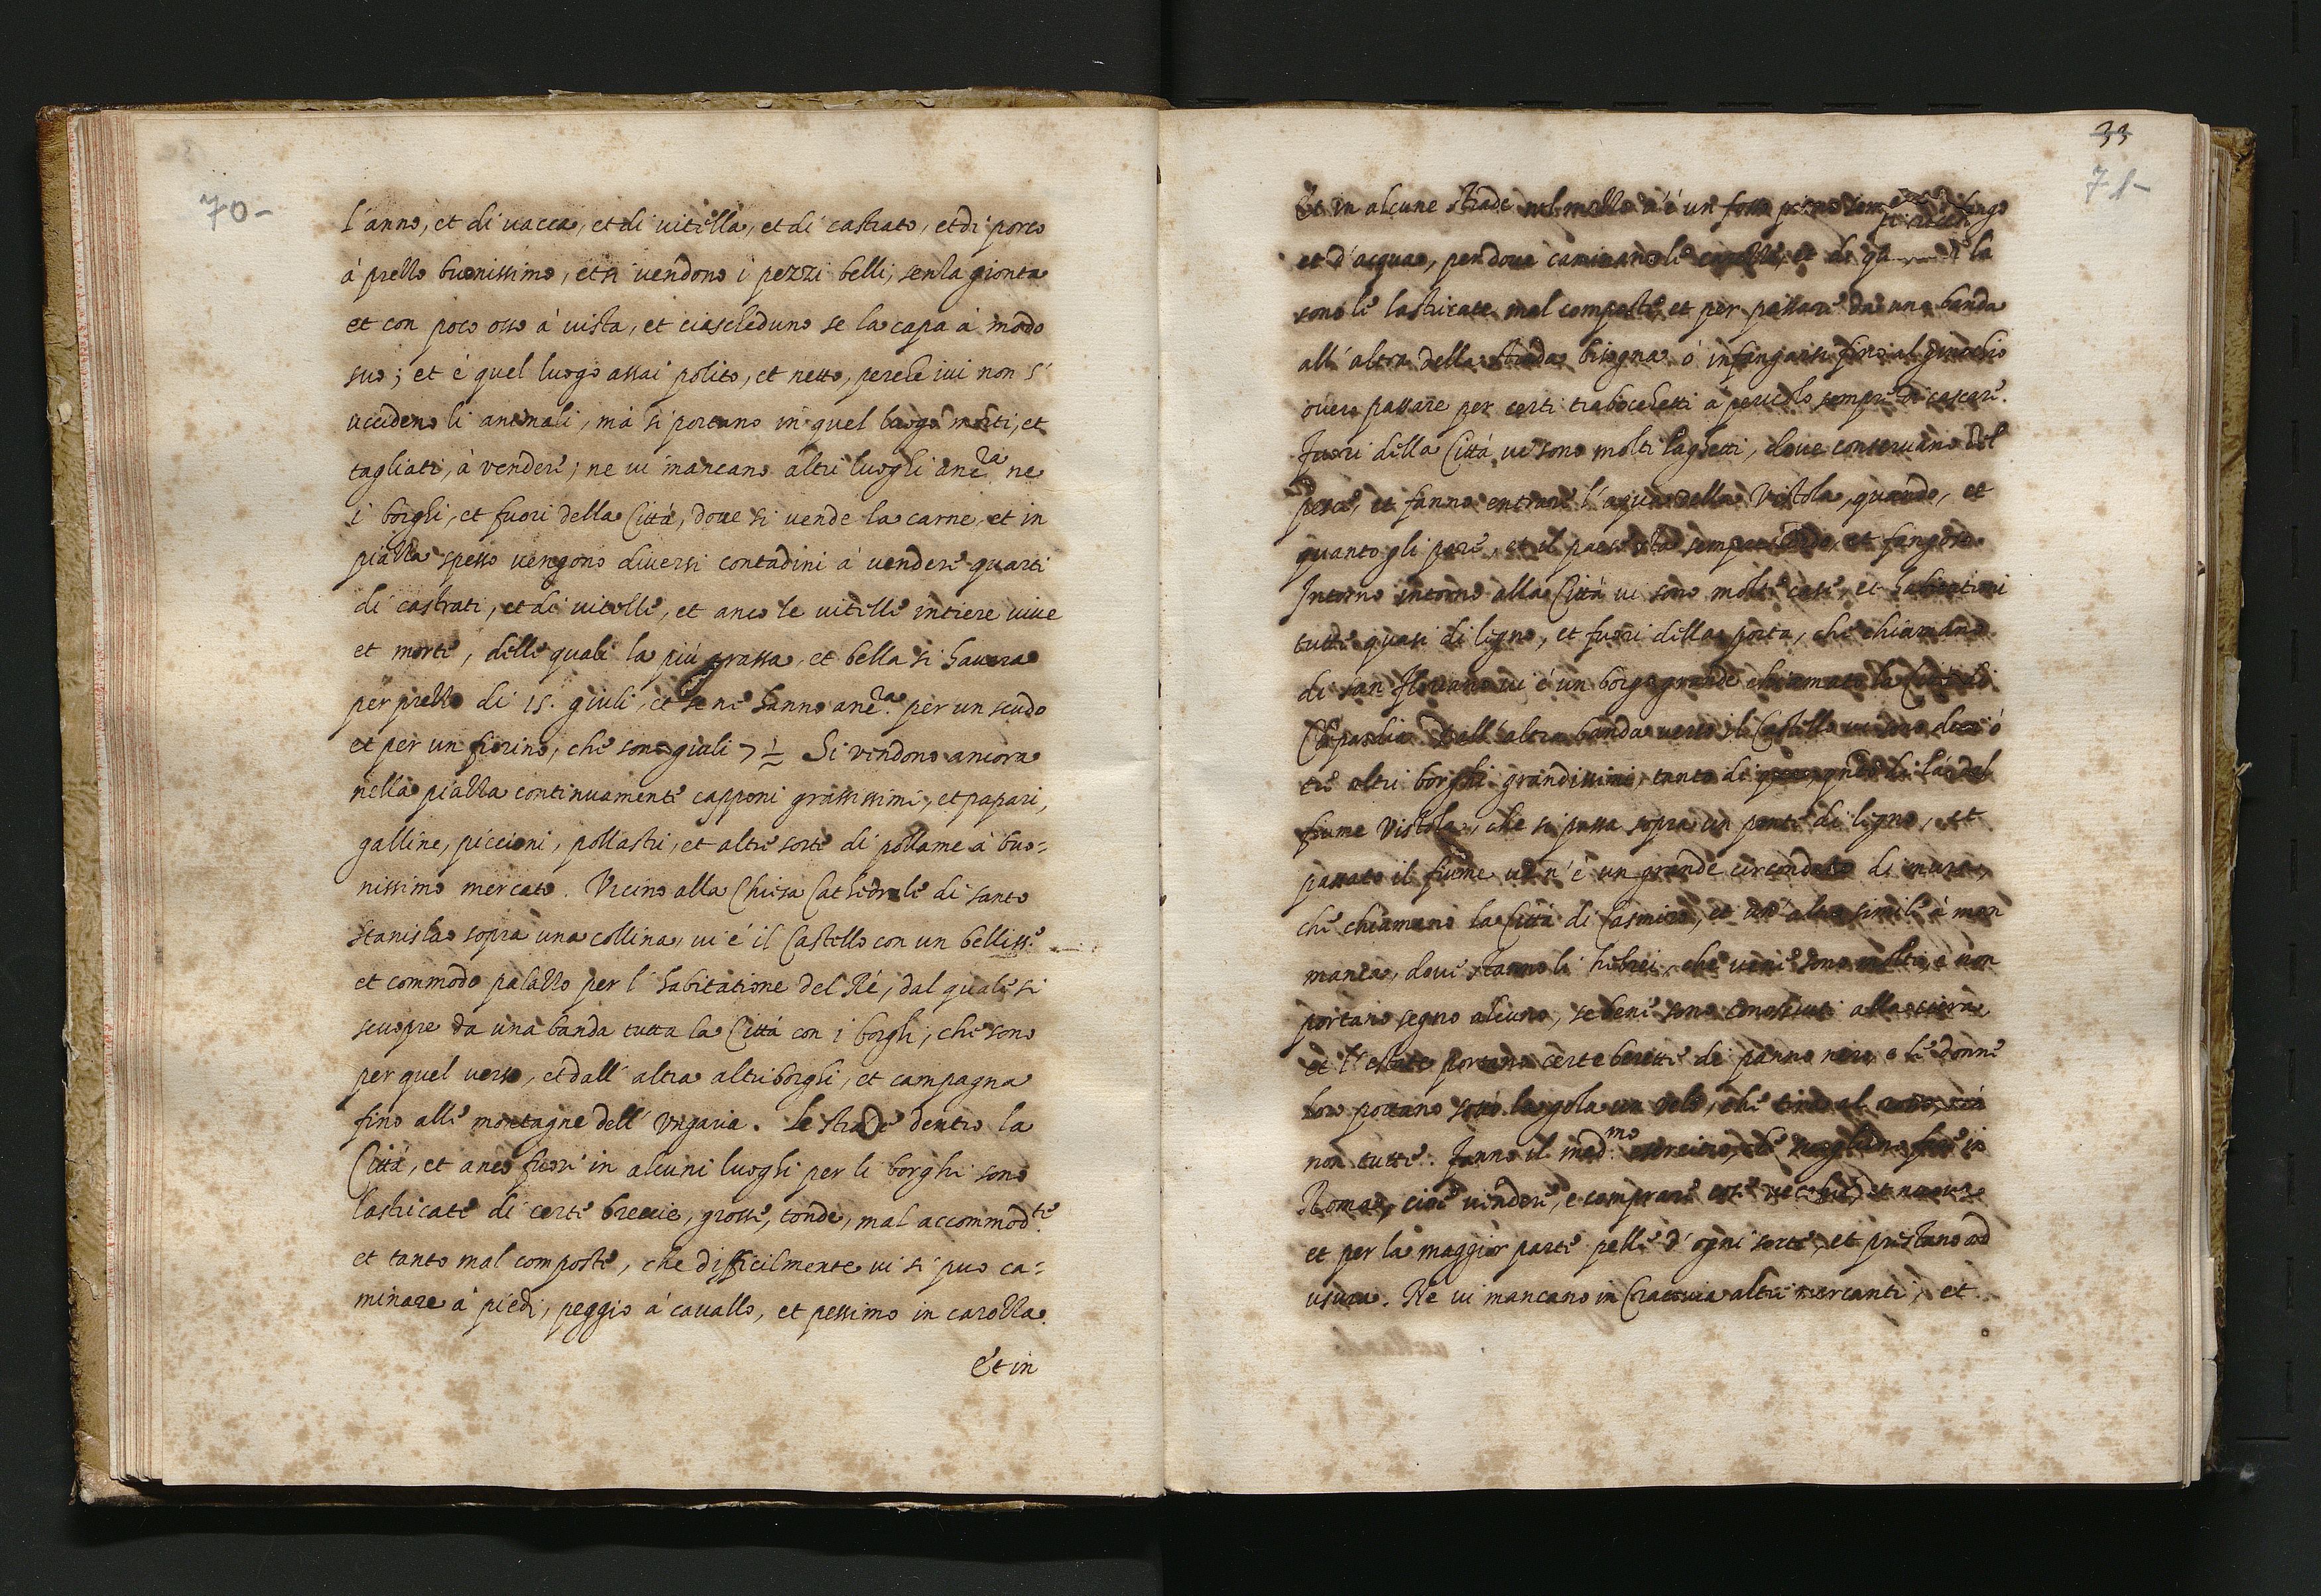 70-
l'anno, et di uacca, et di uitella, et di castrato, et di porco
à prezzo buonissimo, et si uendono i pezzi belli, senza gionta
et con poco osso à uista, et ciascheduno se la capa à modo
suo; et è quel luogo assai polito, et netto, perche iui non s'
uccideno li animali, mà si portano in quel luogo morti, et
tagliati, à vendere; ne ui mancano altri luoghi anc.ra ne
i borghi, et fuori della Città, doue si uende la carne, et in
piazza spesso vengono diuersi contadini à vendere quarti
di castrati, et di uitelle, et anco le uitelle intiere uiue
et morte, delle quali la più grassa, et bella si hauera
per prezzo di 15. giuli, et se ne hanno anc.ra per un scudo
et per un fiorino, che sono giuli 7 ½ Si vendono ancora
nella piazza continuamente capponi grassissimi, et papari,
galline, piccioni, pollastri, et altre sorte di pollame à buo=
nissimo mercato. Vicino alla Chiesa Cathedrale di santo
Stanislao sopra una collina, ui è il Castello con un belliss.o
et commodo palazzo per l'habitatione del Rè, dal quale si
scuopre da una banda tutta la Città con i borghi, che sono
per quel verso, et dall'altra altri borghi, et campagna
fino alle montagne dell'Vngaria. Le strade dentro la
Città, et anco fuori in alcuni luoghi per li borghi sono
lastricate di certe breccie, grosse, tonde, mal accommod.te
et tanto mal composte, che difficilmente ui si puo ca=
minare à piedi, peggio à cauallo, et pessimo in carozza.
Et in
33
71-
Et in alcune strade nel mezzo u'è un fosso pieno fango
et d'acqua, per doue caminano le carozze, et di qua di la
sono le lastricate mal composte, et per passare da una banda
all'altra della strada bisogna ò infangarsi fino al ginochio
ouero passare per certi trabocchetti à pericolo sempre di cascare.
Fuori della Città ui sono molti laghetti, doue conseruano del
pesce, et fanno entrare l'aqua della Vistola, quando, et
quanto gli pare, et il paese stà sempre et fangoso.
Intorno intorno alla Città ui sono molte case, et habitationi
tutte quasi di legno, et fuori della porta, che chiamano
di san Floriano ui è un borgo grande chiamato la Città di
Clepardia. Dall'altra banda uerso il Castello ui sono doi ò
trè altri borghi grandissimi, tanto di quà, quanto di là dal
fiume Vistola, che si passa sopra un ponte di legno, et
passato il fiume ue n'è un grande circondato di mura,
che chiamano la Città di Casmiro, et un'altro simile à man
manca, doue stanno li hebrei, che ue ne sono molti, e non
portano segno alcuno, se bene sono conosciuti alla ciera,
et l'estate portano certe berette di panno nero, e le donne
loro portano sotto la gola un velo, che tira al rosso, mà
non tutte. Fanno il med.mo esercitio, che sogliono fare in
Roma, cioè vendere, e comprare cose vecchie, et nuoue
et per la maggior parte pelle d'ogni sorte, et prestano ad
usura. Ne ui mancano in Cracouia altri mercanti, et